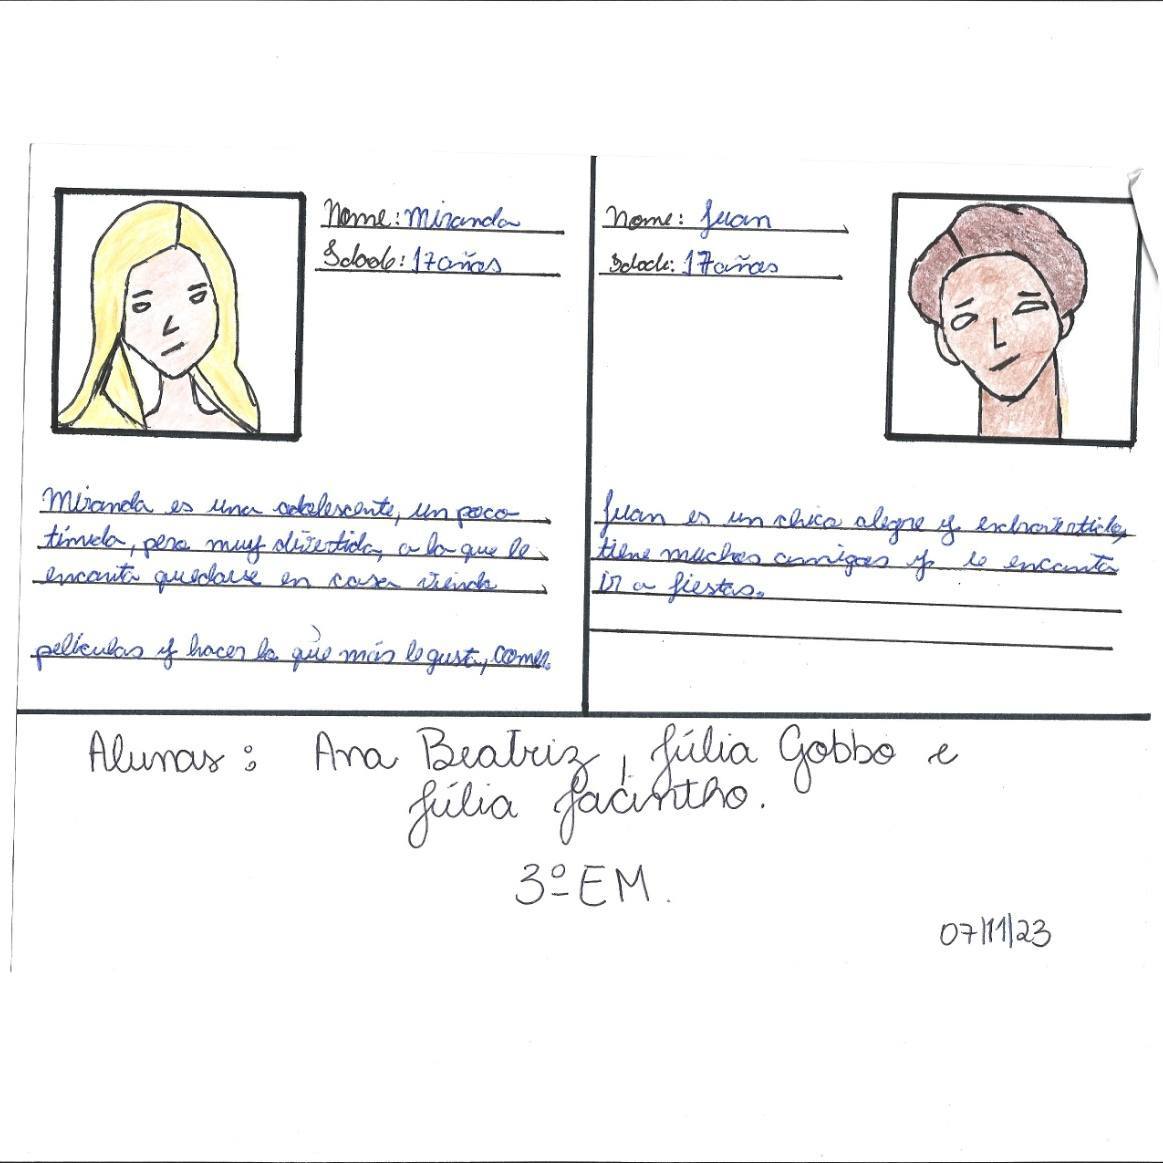 Nome: Miranda
Idade: 17 años
Miranda es una adolescente, un poco
tímida, pero muy divertida, a la que le
encanta quedarse en casa viendo
películas y hacer lo que más le gusta, comer.
Nome: Juan
Idade: 17 años
Juan es un chico alegre y extrovertido,
tiene muchos amigos y le encanta
ir a fiestas.
Alunas: Ana Beatriz, Júlia Gobbo e
Júlia Jacintho.
3º EM.
07/11/23